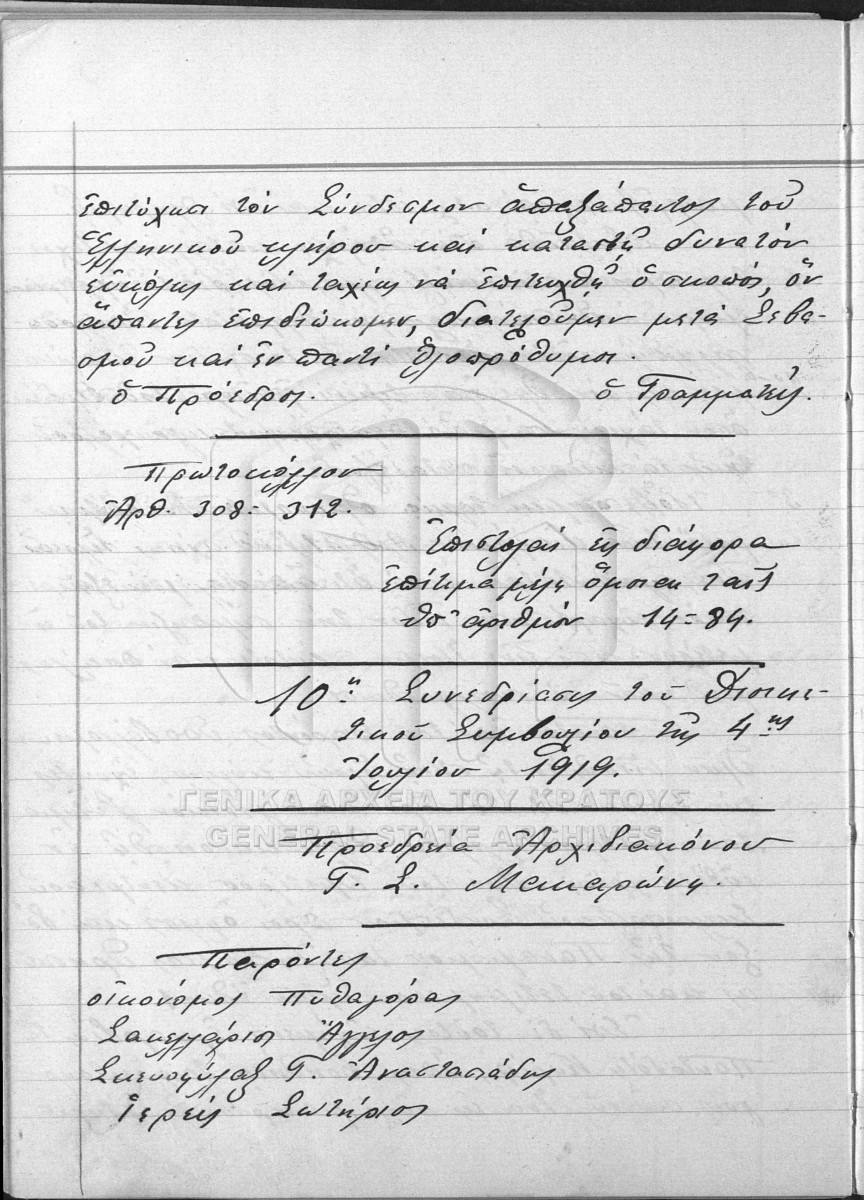 ἐπιτύχῃσι τὸν Σύνδεσμον ἁπαξάπαντος τοῦ
Ἑλληνικοῦ κλήρου καὶ καταστῇ δυνατὸν
εὐκόλως καὶ ταχέως νὰ ἐπιτευχθῇ ὁ σκοπός, ὃν
ἅπαντες ἐπιδιώκομεν, διατελοῦμεν μετὰ Σεβα-
σμοῦ καὶ ἐν παντὶ ὁλοπρόθυμοι.
ὁ Πρόεδρος. ὁ Γραμματεύς.
Πρωτόκολλον
Ἀρθ. 308 - 312.
Ἐπιστολαὶ εἰς διάφορα
ἐπίτιμα μέλη ὅμοιαι ταῖς
ὑπ' ἀριθμὸν 14 = 84.
10η Συνεδρίασις τοῦ Διοικη-
τικοῦ Συμβουλίου τῆς 4ης
Ἰουλίου 1919.
ΓΕΝΙΚΑ ΑΡΧΕΙΑ ΤΟΥ ΚΡΑΤΟΥΣ
GENERAL STATE ARCHIVES
Προεδρεία Ἀρχιδιακόνου
Γ. Σ. Μακαρώνη.
Παρόντες
οἰκονόμος Πυθαγόρας
Σακελλάριος Ἄγγελος
Σκευοφύλαξ Γ. Ἀναστασιάδης
Ἱερεὺς Σωτήριος